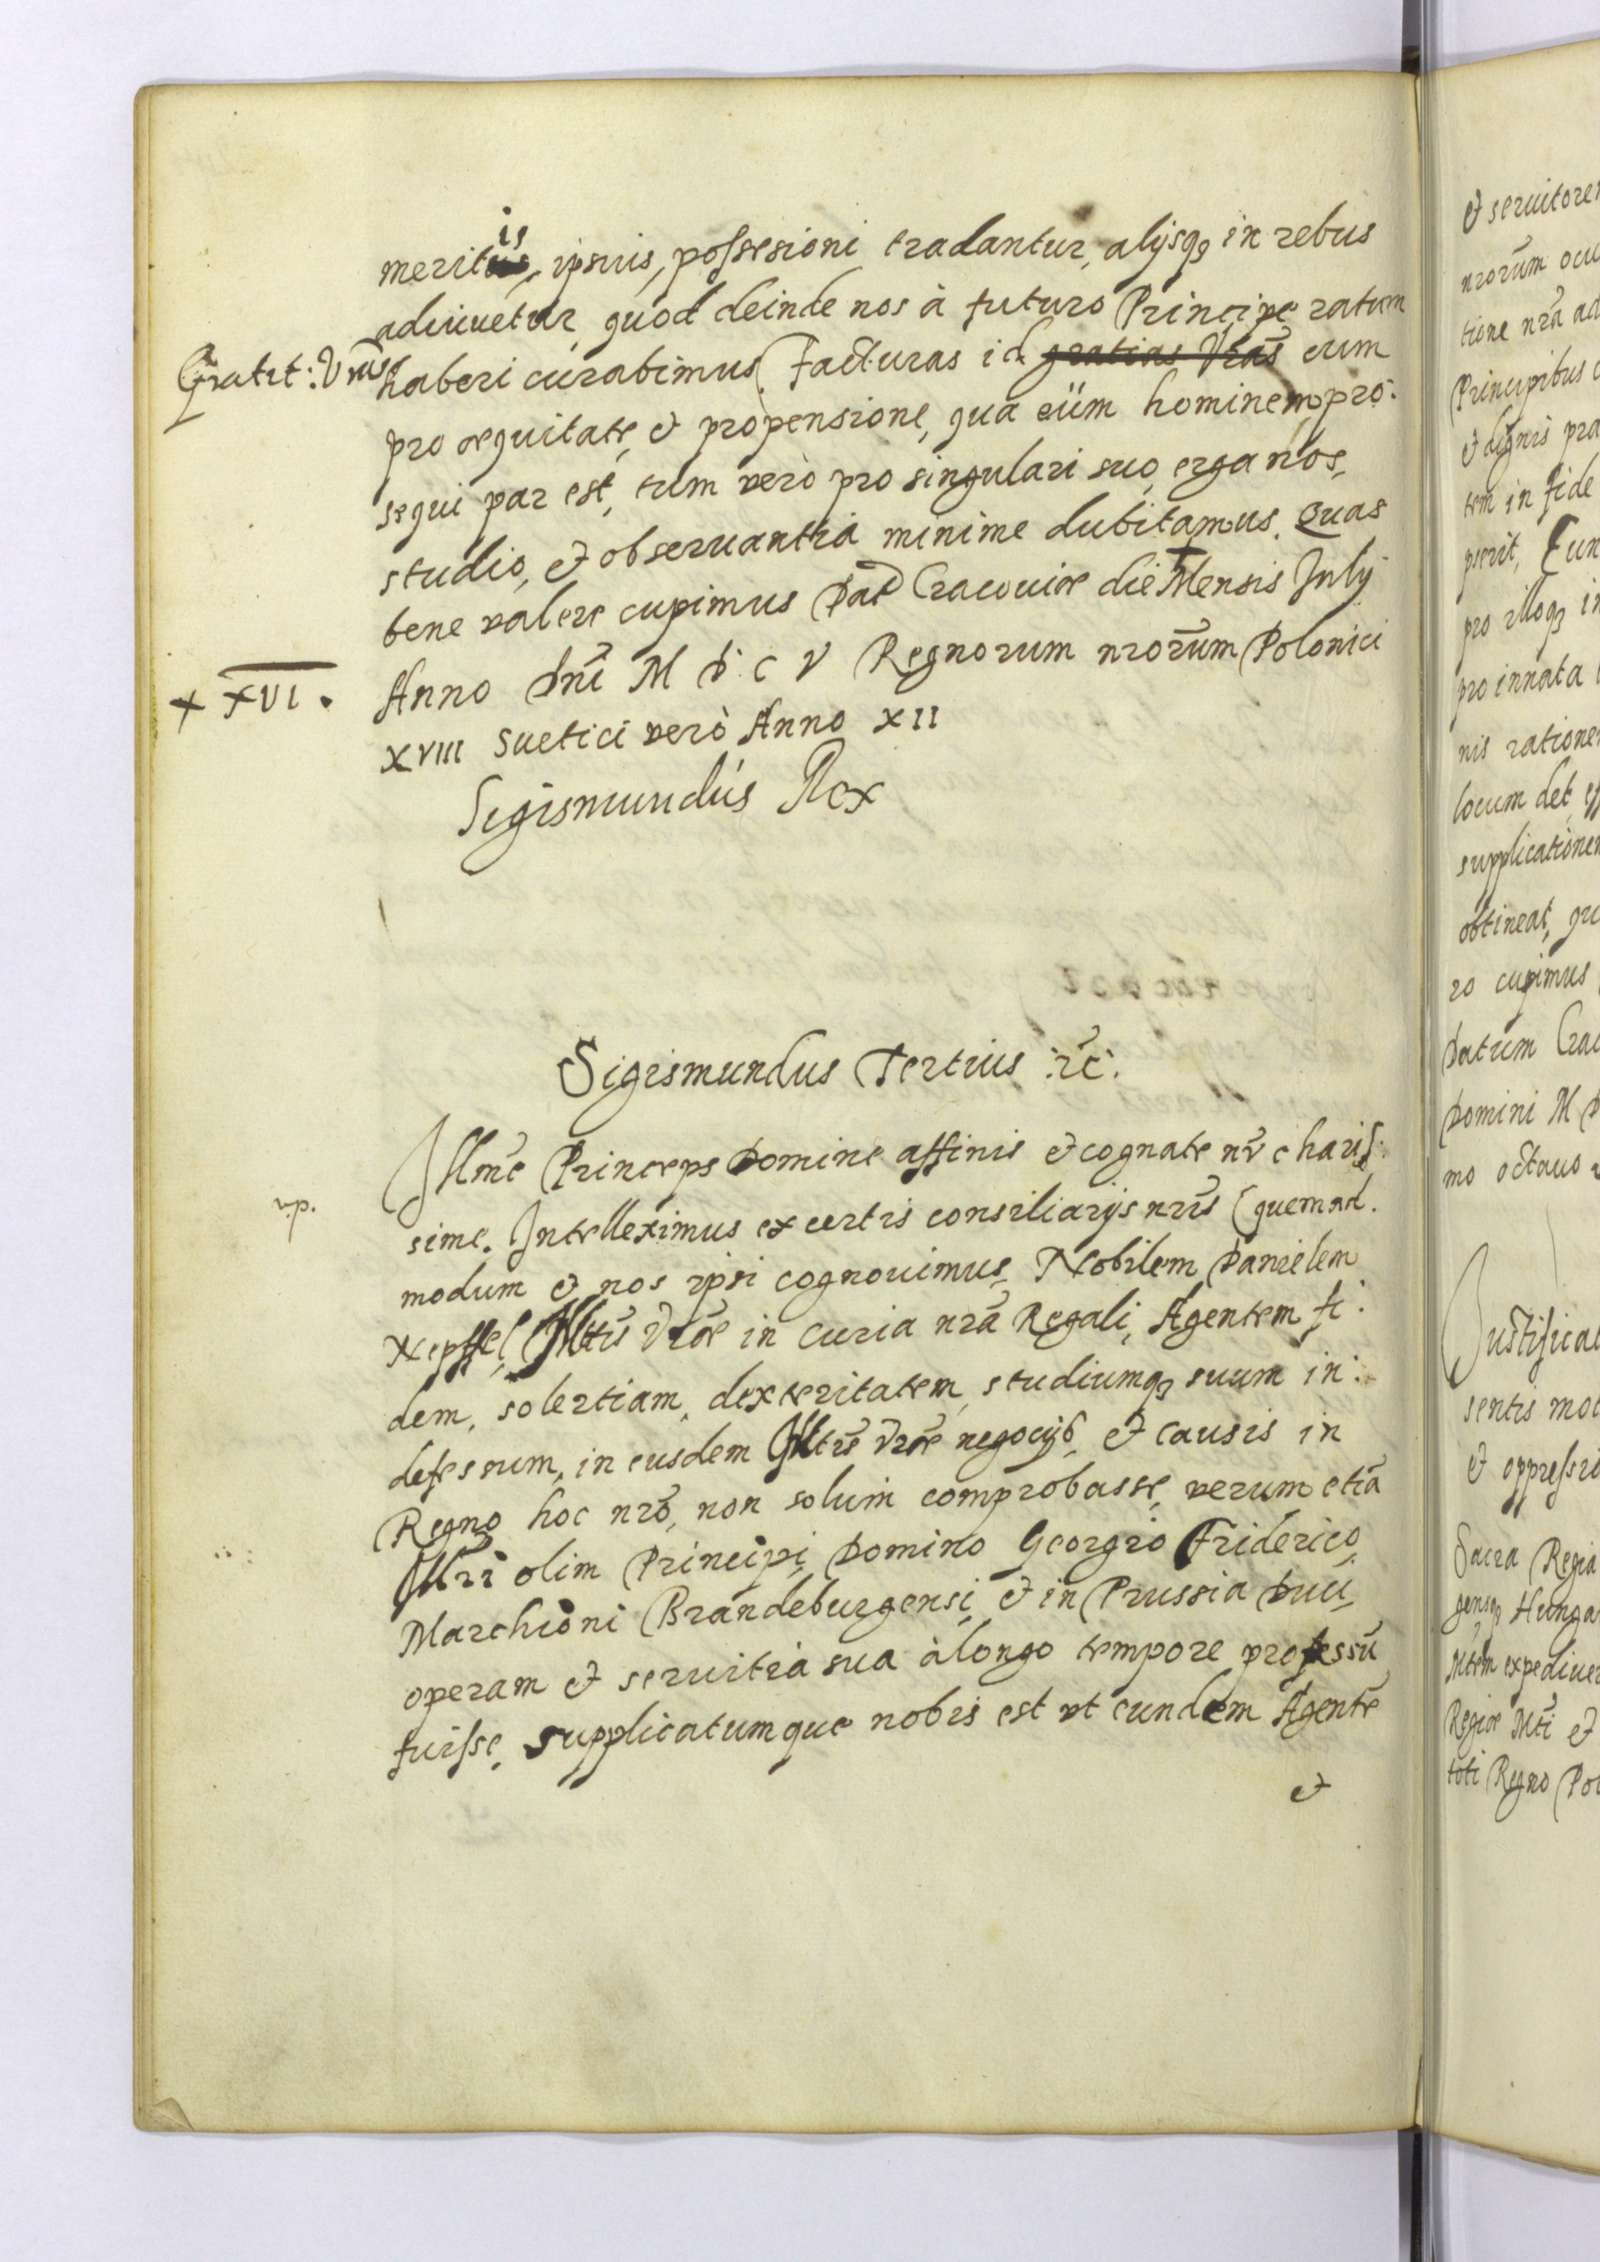 meritis, ipsius, possesioni tradantur, alijsqꝫ in rebus
adiuuetur, quod deinde nos à futuro Principe ratum
Gratit: Vras
haberi curabimus. Facturas id gratias Vras̄ cum
pro æquitate, et propensione, qua eüm hominem pro:
sequi par est, tum verò pro singulari suo, erga nos,
studio, et obseruantia minime dubitamus. Quas
bene valere cupimus Dat̄ Cracouiæ die Mensis Julij
+ XVI.
Anno Dnī M D C V Regnorum nrōrum Polonici
XVIII Suetici verò Anno XII
Sigismundus Rex
Sigismundus Tertius :rc̄:
Illmē Princeps Domine affinis et cognate nr̄ charis:
v.p.
sime. Intelleximus ex certis consiliarijs nrīs (quemad.
modum et nos ipsi cognouimus, Nobilem Danielem
Nepffel, Illtīs Vrǣ in Curia nrā Regali, Agentem fi:
dem, solertiam, dexteritatem, studiumqꝫ suum in:
defessum, in eusdem Illtīs Vrǣ negocijs, et causis in
Regno hoc nrō, non solum comprobasse, verum etiā
Illrī olim Principi, Domino Georgio Friderico,
Marchioni Brandeburgensi, et in Prussia Duci,
operam et seruitia sua à longo tempore professū
fuisse, supplicatumque nobis est vt eundem Agentē
et
et seruitorem
nrōrum ocu
tione nrā ad
Principibus
et dignis pra
tem in fide
pserit, Cun
pro illoqꝫ in
pro innata
nis rationem
locum det, ef
supplicationem
obtineat, qu
ro cupimus
Datum Crac
Domini M D
mo octauo
Justificat
sentis mod
et oppressi
Sacra Regia
gensqꝫ Hunga
Mtem expediuer
Regiæ Mtī et
toti Regno Pol